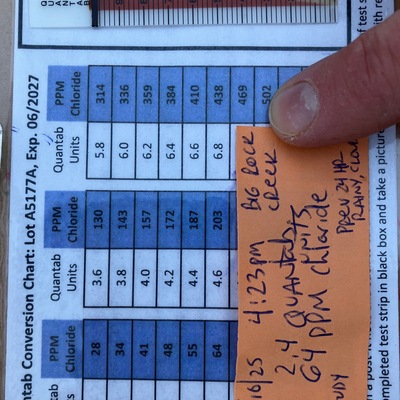 ntab Conversion Chart: Lot A5177A, Exp. 06/2027
PPM Chloride Quantab Units PPM Chloride Quantab Units PPM Chloride
28 3.6 130 5.8 314
34 3.8 143 6.0 336
41 4.0 157 6.2 359
48 4.2 172 6.4 384
55 4.4 187 6.6 410
64 4.6 203 6.8 438
469
502
4:23PM BIG ROCK
CREEK
2.4 QUANTAB
UNITS
64 PPM chloride
PREV 24 HR
RAINY,
UDY
ompleted test strip in black box and take a picture